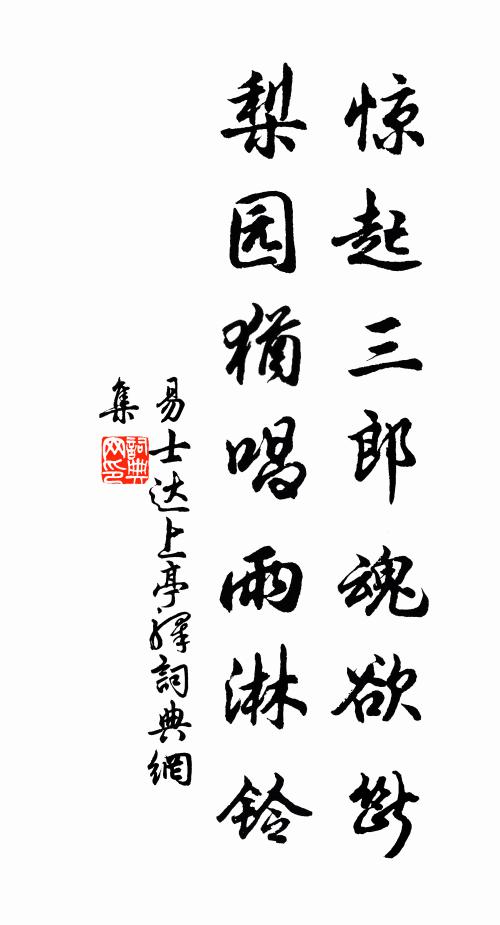 惊起三郎魂欲断
梨园犹唱雨淋铃
易士达上亭驿詞典網
集
詞典网印